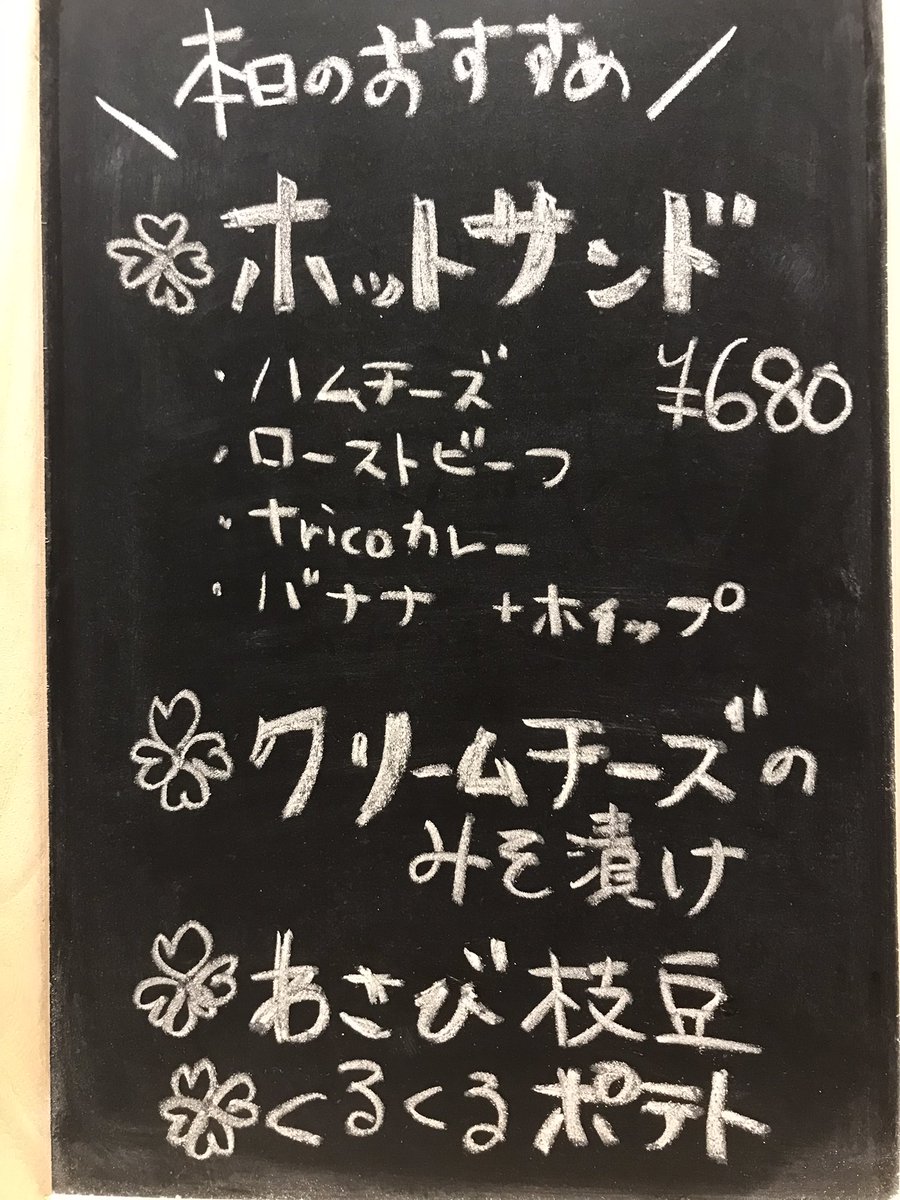 \ 本日のおすすめ /
ホットサンド
¥680
・ハムチーズ
・ローストビーフ
・tricoカレー
・バナナ +ホイップ
クリームチーズの
みそ漬け
わさび枝豆
くるくるポテト